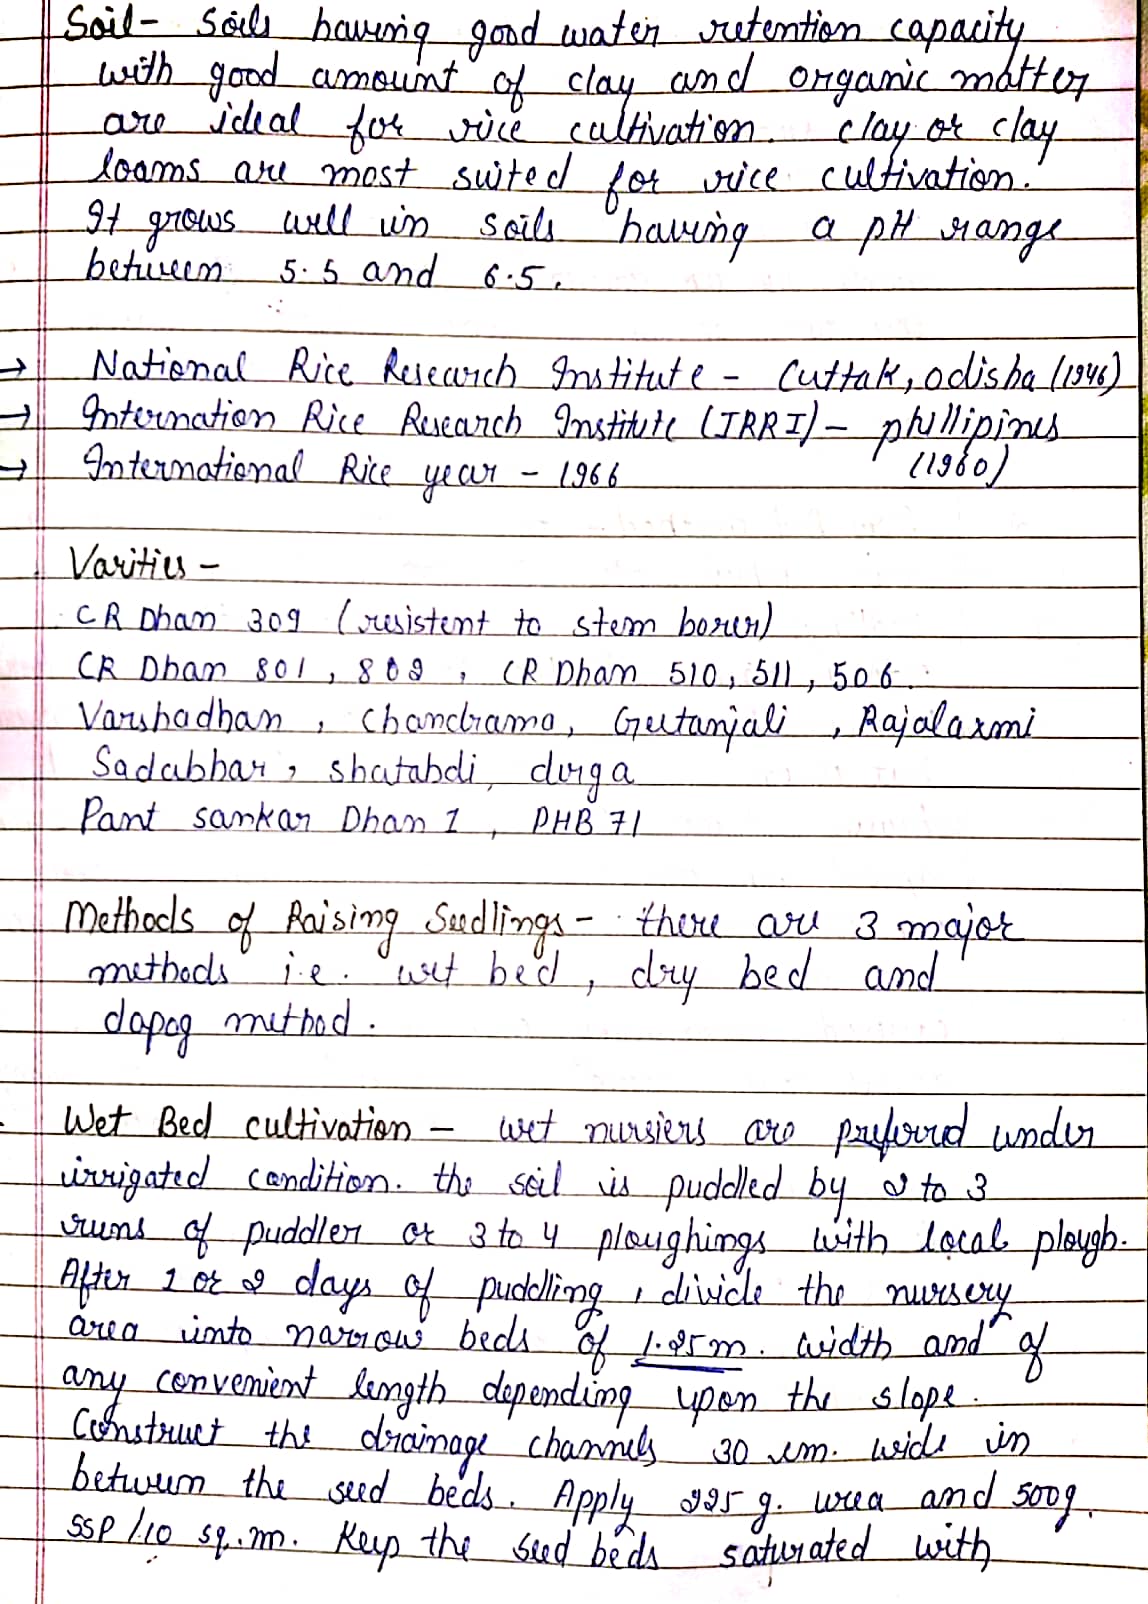 Soil - Soils having good water retention capacity
with good amount of clay and organic matter
are ideal for rice cultivation. clay or clay
loams are most suited for rice cultivation.
It grows well in soils having a pH range
between 5.5 and 6.5.
→ National Rice Research Institute - Cuttak, odisha (1946)
→ Internation Rice Research Institute (IRRI) - phillipines
(1960)
→ International Rice year - 1966
Varities -
CR Dhan 309 (resistent to stem borer)
CR Dhan 801, 802, CR Dhan 510, 511, 506.
Varshadhan, Chandrama, Geetanjali, Rajalaxmi
Sadabhar, shatabdi, durga
Pant sankar Dhan 1, PHB 71
Methods of Raising Seedlings - there are 3 major
methods i.e. wet bed, dry bed and
dapog method.
Wet Bed cultivation - wet nursiers are preferred under
irrigated condition. the soil is puddled by 2 to 3
runs of puddler or 3 to 4 ploughings with local plough.
After 1 or 2 days of puddling, divide the nursery
area into narrow beds of 1.25m. width and of
any convenient length depending upon the slope.
Construct the drainage channels 30 cm. wide in
between the seed beds. Apply 225 g. urea and 500g.
SSP/10 sq.m. Keep the seed beds saturated with